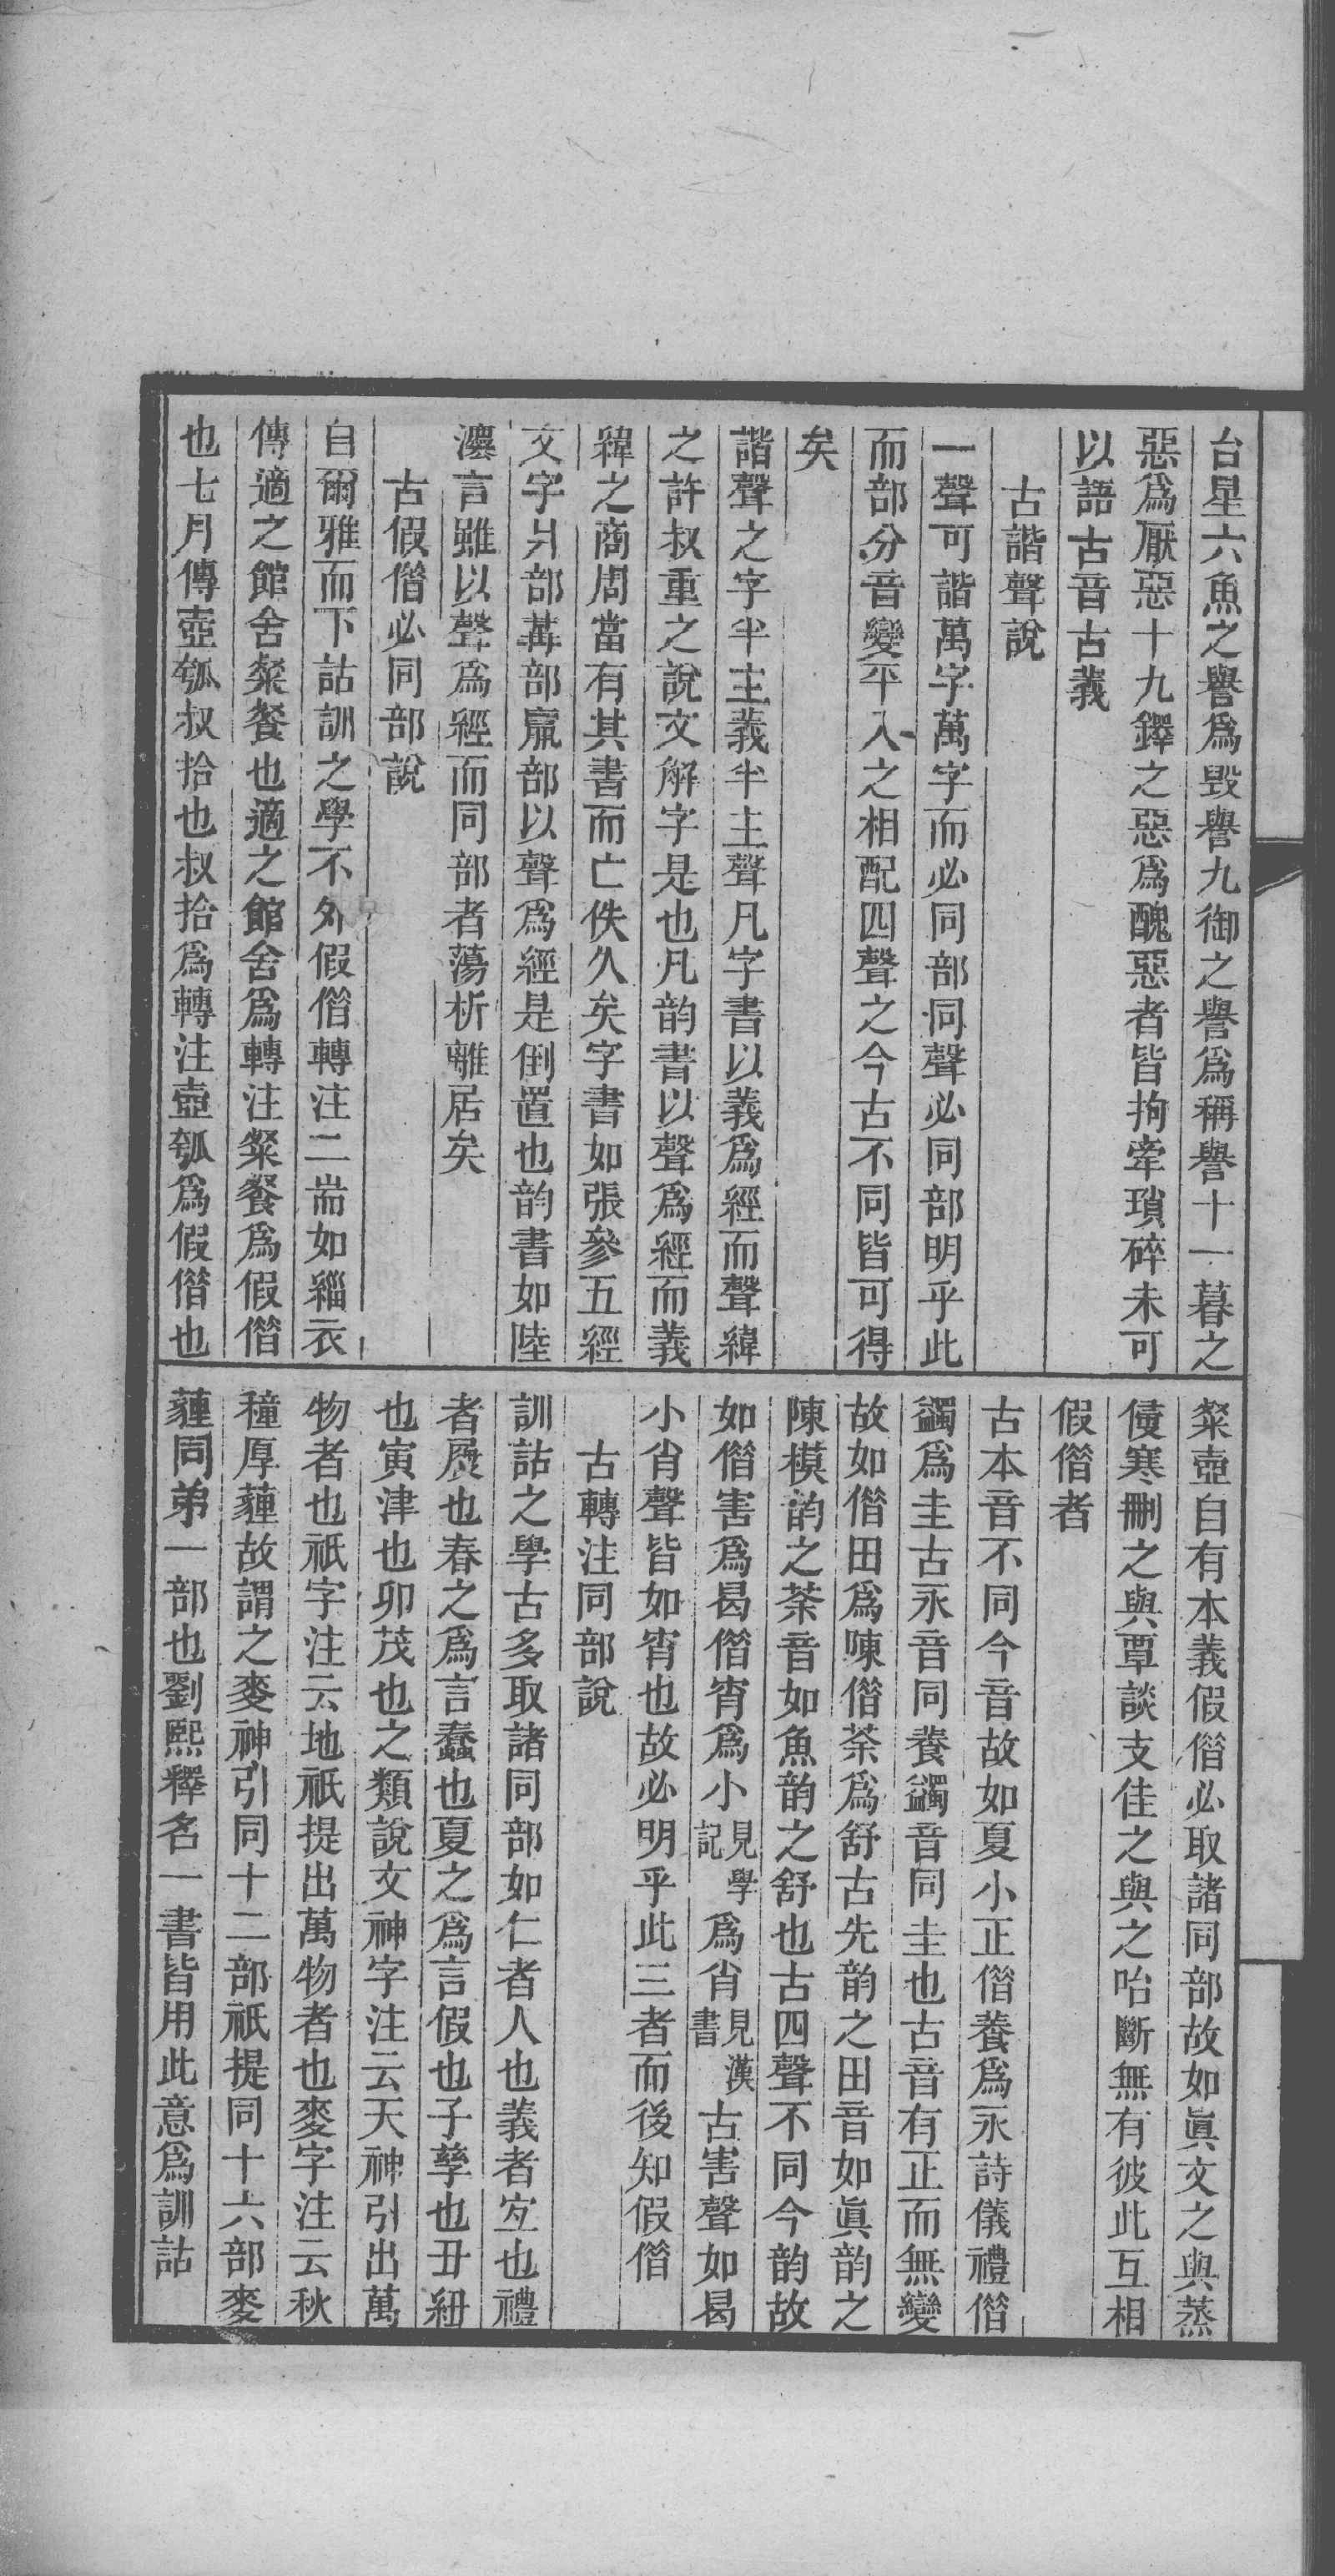 台星六魚之譽爲毀譽九御之譽爲稱譽十一暮之
惡爲厭惡十九鐸之惡爲醜惡者皆拘牽瑣碎未可
以語古音古義
古諧聲說
一聲可諧萬字萬字而必同部同聲必同部明乎此
而部分音變平入之相配四聲之今古不同皆可得
矣
諧聲之字半主義半主聲凡字書以義爲經而聲緯
之許叔重之說文解字是也凡韵書以聲爲經而義
緯之商周當有其書而亡佚久矣字書如張參五經
文字爿部冓部𣎆部以聲爲經是倒置也韵書如陸
灋言雖以聲爲經而同部者蕩析離居矣
古假借必同部說
自爾雅而下詁訓之學不外假借轉注二耑如緇衣
傳適之館舍粲餐也適之館舍爲轉注粲餐爲假借
也七月傳壺瓠叔拾也叔拾爲轉注壺瓠爲假借也
粲壺自有本義假借必取諸同部故如眞文之與蒸
侵寒刪之與覃談支佳之與之咍斷無有彼此互相
假借者
古本音不同今音故如夏小正借養爲永詩儀禮借
蠲爲圭古永音同養蠲音同圭也古音有正而無變
故如借田爲陳借荼爲舒古先韵之田音如眞韵之
陳模韵之荼音如魚韵之舒也古四聲不同今韵故
如借害爲曷借宵爲小見學記爲肖見漢書古害聲如曷
小肖聲皆如宵也故必明乎此三者而後知假借
古轉注同部說
訓詁之學古多取諸同部如仁者人也義者宐也禮
者履也春之爲言蠢也夏之爲言假也子孳也丑紐
也寅津也卯茂也之類說文神字注云天神引出萬
物者也祇字注云地祇提出萬物者也麥字注云秋
穜厚薶故謂之麥神引同十二部祇提同十六部麥
薶同弟一部也劉熙釋名一書皆用此意爲訓詁